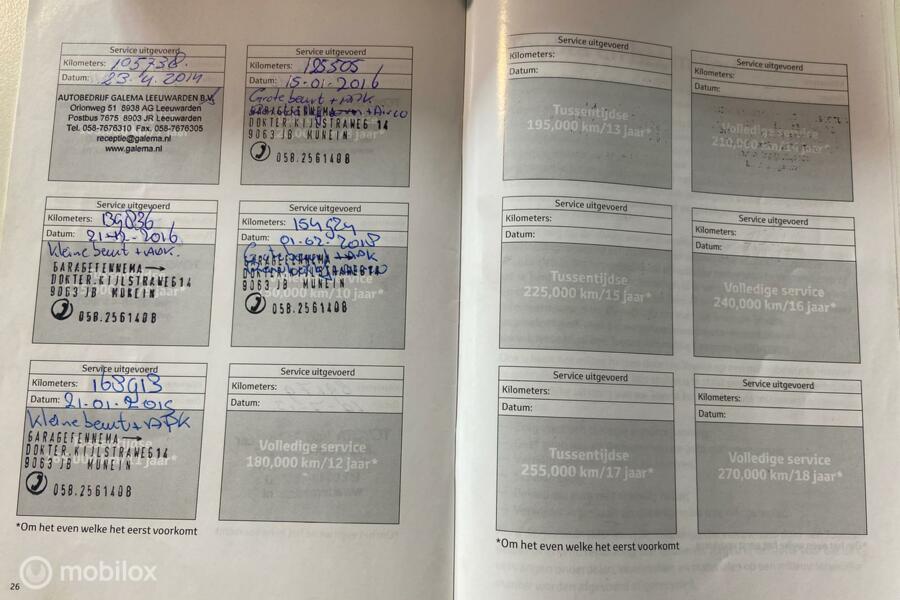 Service uitgevoerd
Kilometers: 105738.
Datum: 23.4.2014
AUTOBEDRIJF GALEMA LEEUWARDEN B.V.
Orionweg 51 8938 AG Leeuwarden
Postbus 7675 8903 JR Leeuwarden
Tel. 058-7676310 Fax. 058-7676305
receptie@galema.nl
www.galema.nl
Service uitgevoerd
Kilometers:
Datum: 15-01-2016
Grote beurt + APK
DOKTER.KIJLSTRAWEG 14
9063 JB MUNEIN
058.2561408
Service uitgevoerd
Kilometers: 139836
Datum: 2016
Kleine beurt + APK.
GARAGEFENNEMA
DOKTER.KIJLSTRAWEG14
9063 JB MUNEIN
058.2561408
Service uitgevoerd
Kilometers: 154924
Datum: 01-02-2018
Grote beurt + APK
9063 JB MUNEIN
km/10 jaar*
058.2561408
Service uitgevoerd
Kilometers: 168913
Datum: 21-01-2019
Kleine beurt + APK
GARAGEFENNEMA
DOKTER.KIJLSTRAWEG14
9063 JB MUNEIN
058.2561408
Service uitgevoerd
Kilometers:
Datum:
Volledige service
180,000 km/12 jaar*
*Om het even welke het eerst voorkomt
26
Service uitgevoerd
Kilometers:
Datum:
Tussentijdse
195,000 km/13 jaar*
Service uitgevoerd
Kilometers:
Datum:
Volledige service
210,000 km/14 jaar*
Service uitgevoerd
Kilometers:
Datum:
Tussentijdse
225,000 km/15 jaar*
Service uitgevoerd
Kilometers:
Datum:
Volledige service
240,000 km/16 jaar*
Service uitgevoerd
Kilometers:
Datum:
Tussentijdse
255,000 km/17 jaar*
Service uitgevoerd
Kilometers:
Datum:
Volledige service
270,000 km/18 jaar*
*Om het even welke het eerst voorkomt
mobilox